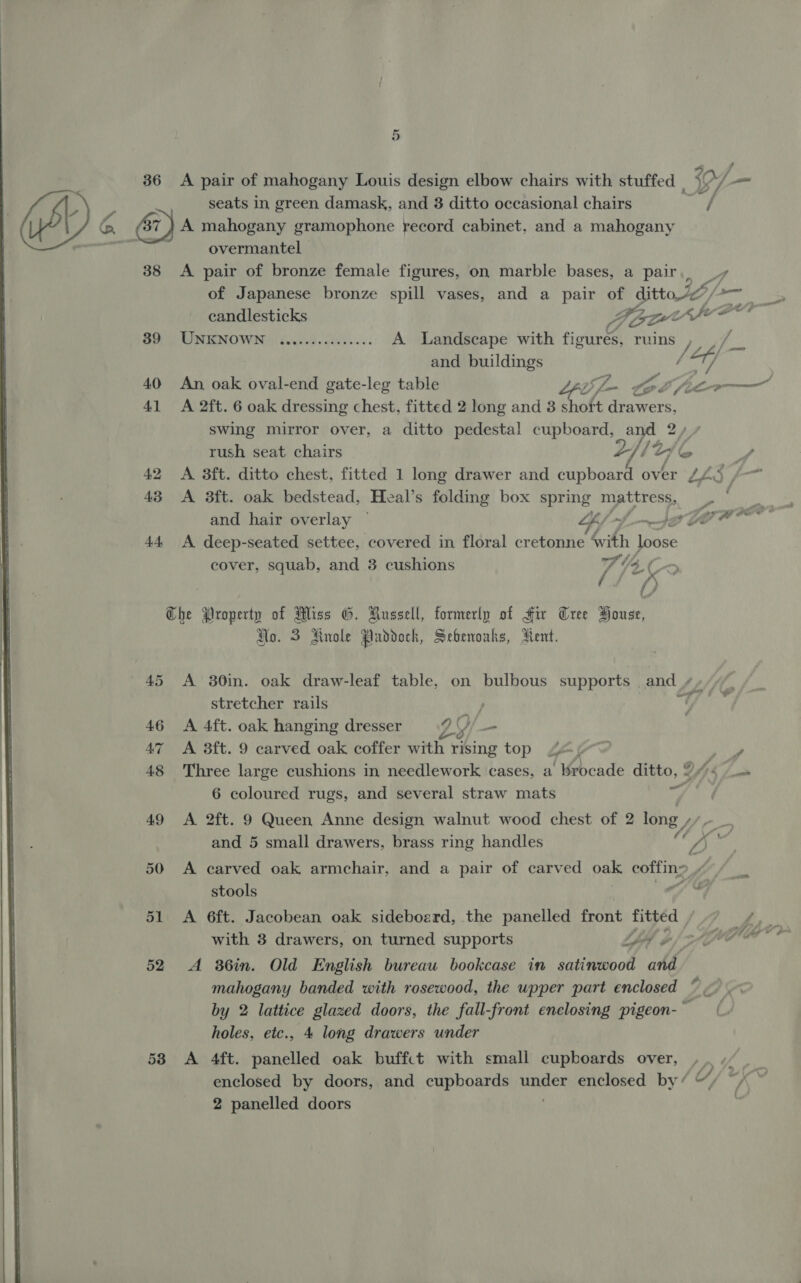 5
36 A pair of mahogany Louis design elbow chairs with stuffed
seats in green damask, and 3 ditto occasional chairs
37 A mahogany gramophone record cabinet, and a mahogany
overmantel
38 A pair of bronze female figures, on marble bases, a pair
of Japanese bronze spill vases, and a pair of ditto
candlesticks
39 UNKNOWN .............. A Landscape with figures, ruins
and buildings
40 An oak oval-end gate-leg table
41 A 2ft. 6 oak dressing chest, fitted 2 long and 3 short drawers,
swing mirror over, a ditto pedestal cupboard, and 2
rush seat chairs
42 A 3ft. ditto chest, fitted 1 long drawer and cupboard over
43 A 3ft. oak bedstead, Heal's folding box spring mattress,
and hair overlay
44 A deep-seated settee, covered in floral cretonne with loose
cover, squab, and 3 cushions
The Property of Miss G. Russell, formerly of Fir Tree House,
No. 3 Knole Paddock, Sevenoaks, Kent.
45 A 30in. oak draw-leaf table, on bulbous supports and
stretcher rails
46 A 4ft. oak hanging dresser
47 A 3ft. 9 carved oak coffer with rising top
48 Three large cushions in needlework cases, a brocade ditto,
6 coloured rugs, and several straw mats
49 A 2ft. 9 Queen Anne design walnut wood chest of 2 long
and 5 small drawers, brass ring handles
50 A carved oak armchair, and a pair of carved oak coffin
stools
51 A 6ft. Jacobean oak sideboard, the panelled front fitted
with 3 drawers, on turned supports
52 A 36in. Old English bureau bookcase in satinwood and
mahogany banded with rosewood, the upper part enclosed
by 2 lattice glazed doors, the fall-front enclosing pigeon-
holes, etc., 4 long drawers under
53 A 4ft. panelled oak buffet with small cupboards over,
enclosed by doors, and cupboards under enclosed by
2 panelled doors